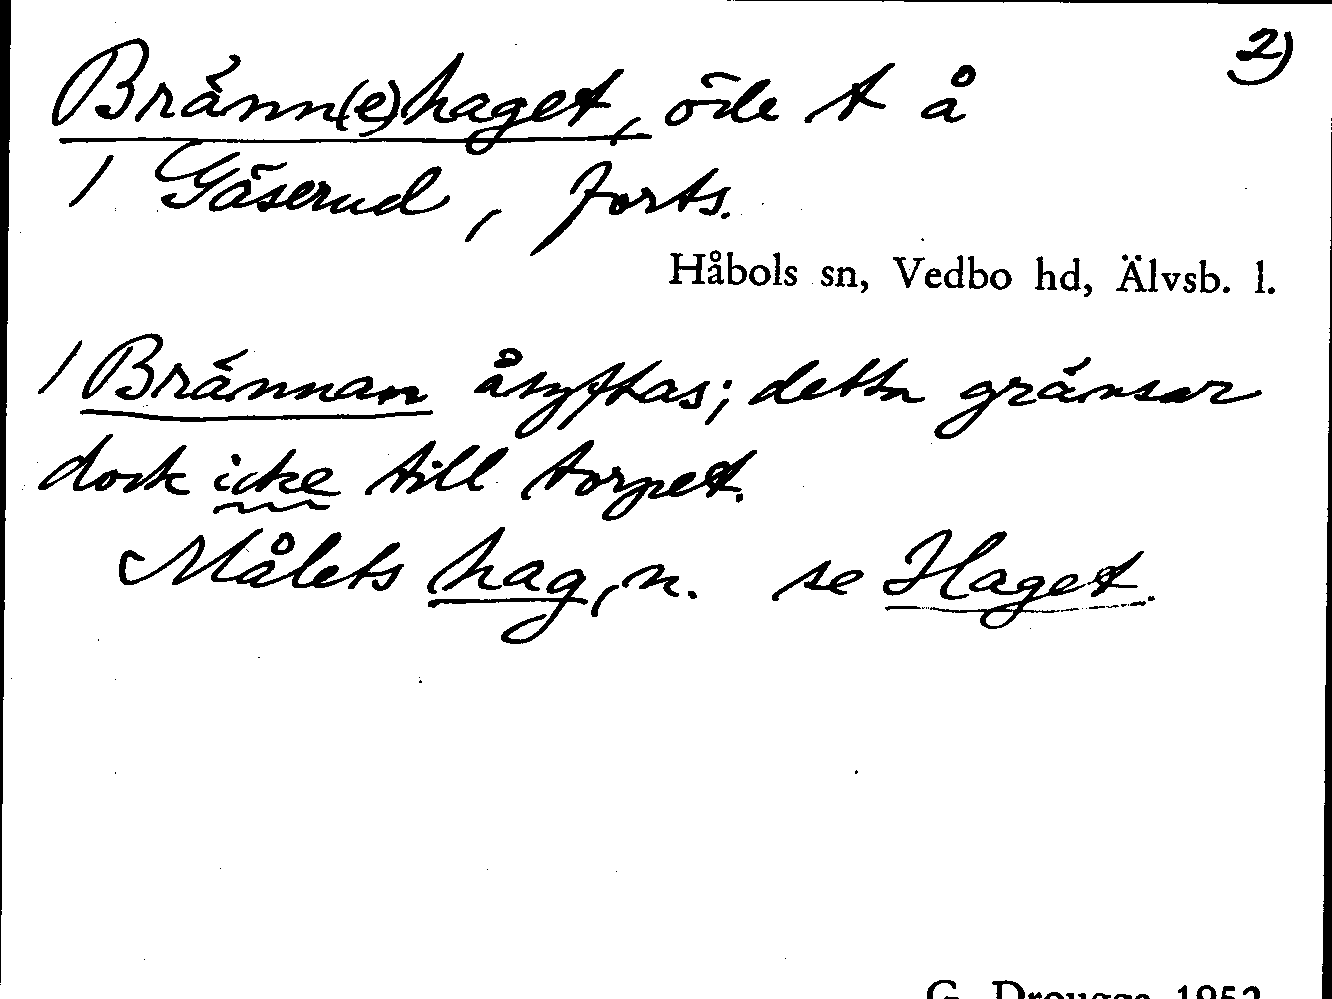 2)
Bränn(e)haget, öde t å
1 Gäserud, forts.
Håbols sn, Vedbo hd, Älvsb. l.
1 Brännan åsyftas; detta gränsar
dock icke till torpet.
Målets hag, n. se Haget.
G. Drougge 1952